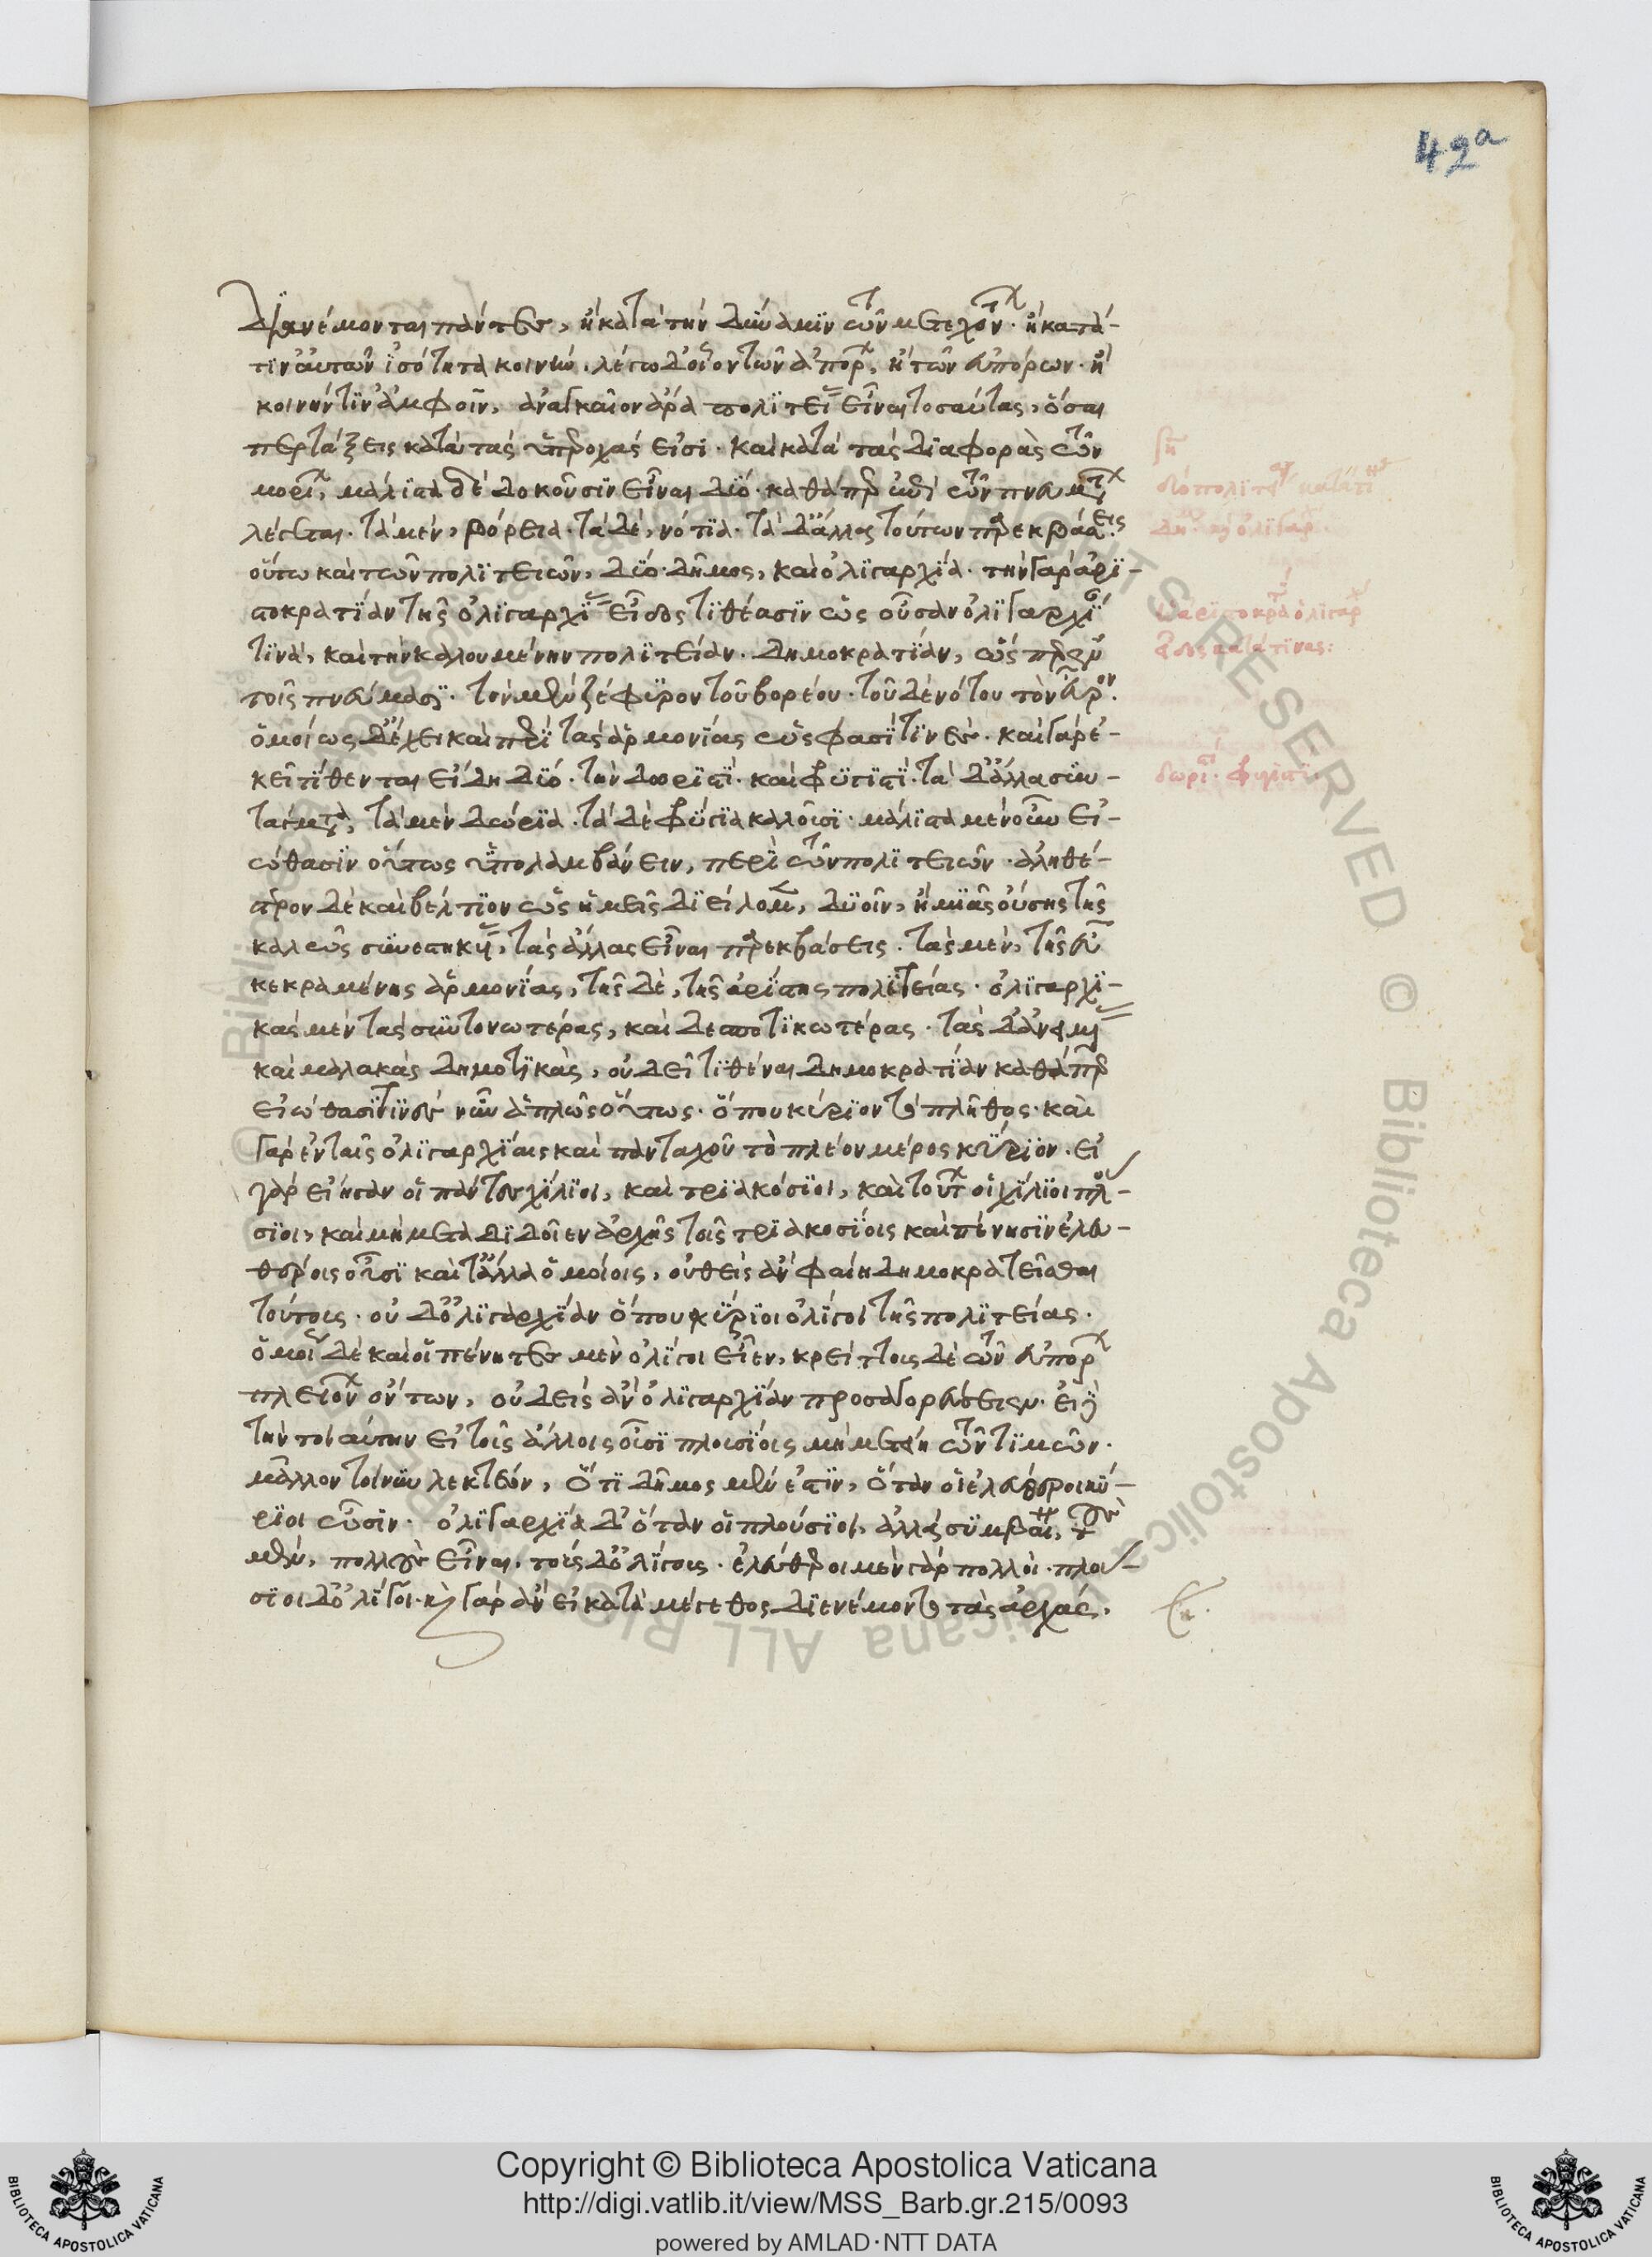 42a
διανέμονται πάντες, ἢ κατὰ τὴν δύναμιν τῶν μετεχόντων. ἢ κατά
τιν' αὐτῶν ἰσότητα κοινήν. λέγω δ' οἷον τῶν ἀπόρων, ἢ τῶν εὐπόρων. ἢ
κοινήν τιν' ἀμφοῖν, ἀναγκαῖον ἄρα πολιτείας εἶναι τοσαύτας, ὅσαι
περ τάξεις κατὰ τὰς ὑπεροχάς εἰσι. καὶ κατὰ τὰς διαφορὰς τῶν
μορίων, μάλιστα δὲ δοκοῦσιν εἶναι δύο. καθάπερ ἐπὶ τῶν πνευμάτων
λέγεται. τὰ μὲν, βόρεια. τὰ δὲ, νότια. τὰ δ' ἄλλας τούτων παρεκβάσεις.
οὕτω καὶ τῶν πολιτειῶν, δύο. δῆμος, καὶ ὀλιγαρχία. τὴν γὰρ ἀρι-
στοκρατίαν τῆς ὀλιγαρχίας εἶδος τιθέασιν ὡς οὖσαν ὀλιγαρχίαν
τινὰ, καὶ τὴν καλουμένην πολιτείαν. δημοκρατίαν, ὥσπερ ἐν
τοῖς πνεύμασι. τὸν μὲν ζέφυρον τοῦ βορέου. τοῦ δὲ νότου τὸν εὖρον.
ὁμοίως δ' ἔχει καὶ περὶ τὰς ἁρμονίας ὥς φασί τινες. καὶ γὰρ ἐ-
κεῖ τίθενται εἴδη δύο. τὴν δωριστὶ. καὶ φυγιστί. τὰ δ' ἄλλα συν-
τάγματα, τὰ μὲν δώρια. τὰ δὲ φύγια καλοῦσι. μάλιστα μὲν οὖν εἰ-
ώθασιν οὕτως ὑπολαμβάνειν, περὶ τῶν πολιτειῶν. ἀληθέ-
στερον δὲ καὶ βέλτιον ὡς ἡμεῖς διείλομεν, δυοῖν, ἢ μιᾶς οὔσης τῆς
καλῶς συνεστηκυίας, τὰς ἄλλας εἶναι παρεκβάσεις. τὰς μὲν, τῆς εὖ
κεκραμένης ἁρμονίας, τῆς δὲ, τῆς ἀρίστης πολιτείας. ὀλιγαρχι-
κὰς μὲν τὰς συντονωτέρας, καὶ δεσποτικωτέρας. τὰς δ' ἀνειμένας
καὶ μαλακὰς δημοτικὰς, οὐ δεῖ τιθέναι δημοκρατίαν καθάπερ
εἰώθασί τινες νῦν ἁπλῶς οὕτως. ὅπου κύριον τὸ πλῆθος. καὶ
γὰρ ἐν ταῖς ὀλιγαρχίαις καὶ πανταχοῦ τὸ πλέον μέρος κύριον. εἰ
γὰρ εἴησαν οἱ πάντες χίλιοι, καὶ τριακόσιοι, καὶ τούτων οἱ χίλιοι πλού-
σιοι, καὶ μὴ μεταδιδοῖεν ἀρχῆς τοῖς τριακοσίοις καὶ πένησιν ἐλευ-
θέροις οὖσι καὶ τἆλλα ὁμοίοις, οὐθεὶς ἂν φαίη δημοκρατεῖσθαι
τούτους. οὐ δ' ὀλιγαρχίαν ὅπου κύριοι ὀλίγοι τῆς πολιτείας.
ὁμοίως δὲ καὶ οἱ πένητες μὲν ὀλίγοι εἶεν, κρείττους δὲ τῶν εὐπόρων
πλειόνων ὄντων, οὐδεὶς ἂν ὀλιγαρχίαν προσαγορεύσειεν.
τὴν τοιαύτην εἰ τοῖς ἄλλοις οὖσι πλουσίοις μὴ μετείη τῶν τιμῶν.
μᾶλλον τοίνυν λεκτέον, ὅτι δῆμος μέν ἐστιν, ὅταν οἱ ἐλεύθεροι κύ-
ριοι ὦσιν. ὀλιγαρχία δ' ὅταν οἱ πλούσιοι, ἀλλὰ συμβαίνει, τοὺς
μὲν, πολλοὺς εἶναι. τοὺς δ' ὀλίγους. ἐλεύθεροι μὲν γὰρ πολλοί. πλού-
σιοι δ' ὀλίγοι. καὶ γὰρ ἂν εἰ κατὰ μέγεθος διενέμοντο τὰς ἀρχάς,
Copyright © Biblioteca Apostolica Vaticana
http://digi.vatlib.it/view/MSS_Barb.gr.215/0093
powered by AMLAD·NTT DATA
BIBLIOTECA APOSTOLICA VATICANA
BIBLIOTECA APOSTOLICA VATICANA